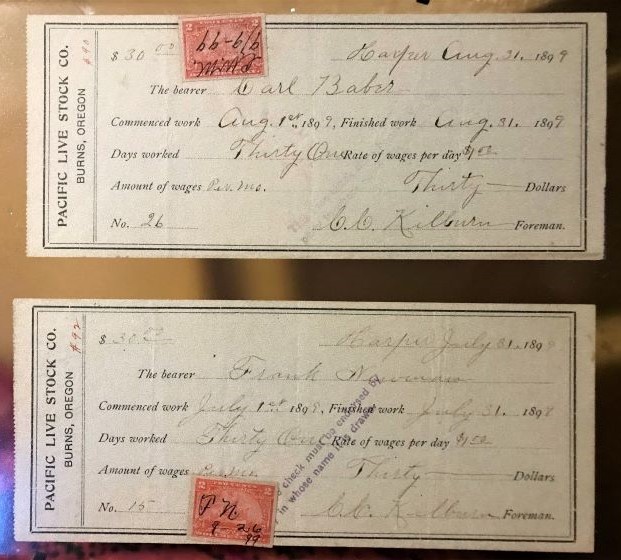 PACIFIC LIVE STOCK CO.
BURNS, OREGON
$ 30 00
Harper Aug. 31. 1899
The bearer Carl Baber
Commenced work Aug. 1st, 1899, Finished work Aug. 31. 1899
Days worked Thirty One Rate of wages per day $1.00
Amount of wages Per. Mo. Thirty Dollars
No. 26 C.C. Kilburn Foreman.
2
2
9/9-99
PACIFIC LIVE STOCK CO.
BURNS, OREGON
$92
$ 30.00
Harper July 31. 1899
The bearer Frank Newman
Commenced work July 1st 1899, Finished work July 31. 1899
Days worked Thirty One Rate of wages per day $1.00
Amount of wages Per Mo. Thirty Dollars
No. 15 C.C. Kilburn Foreman.
check must be endorsed by
in whose name it is drawn
2
2
F N
9-26
99